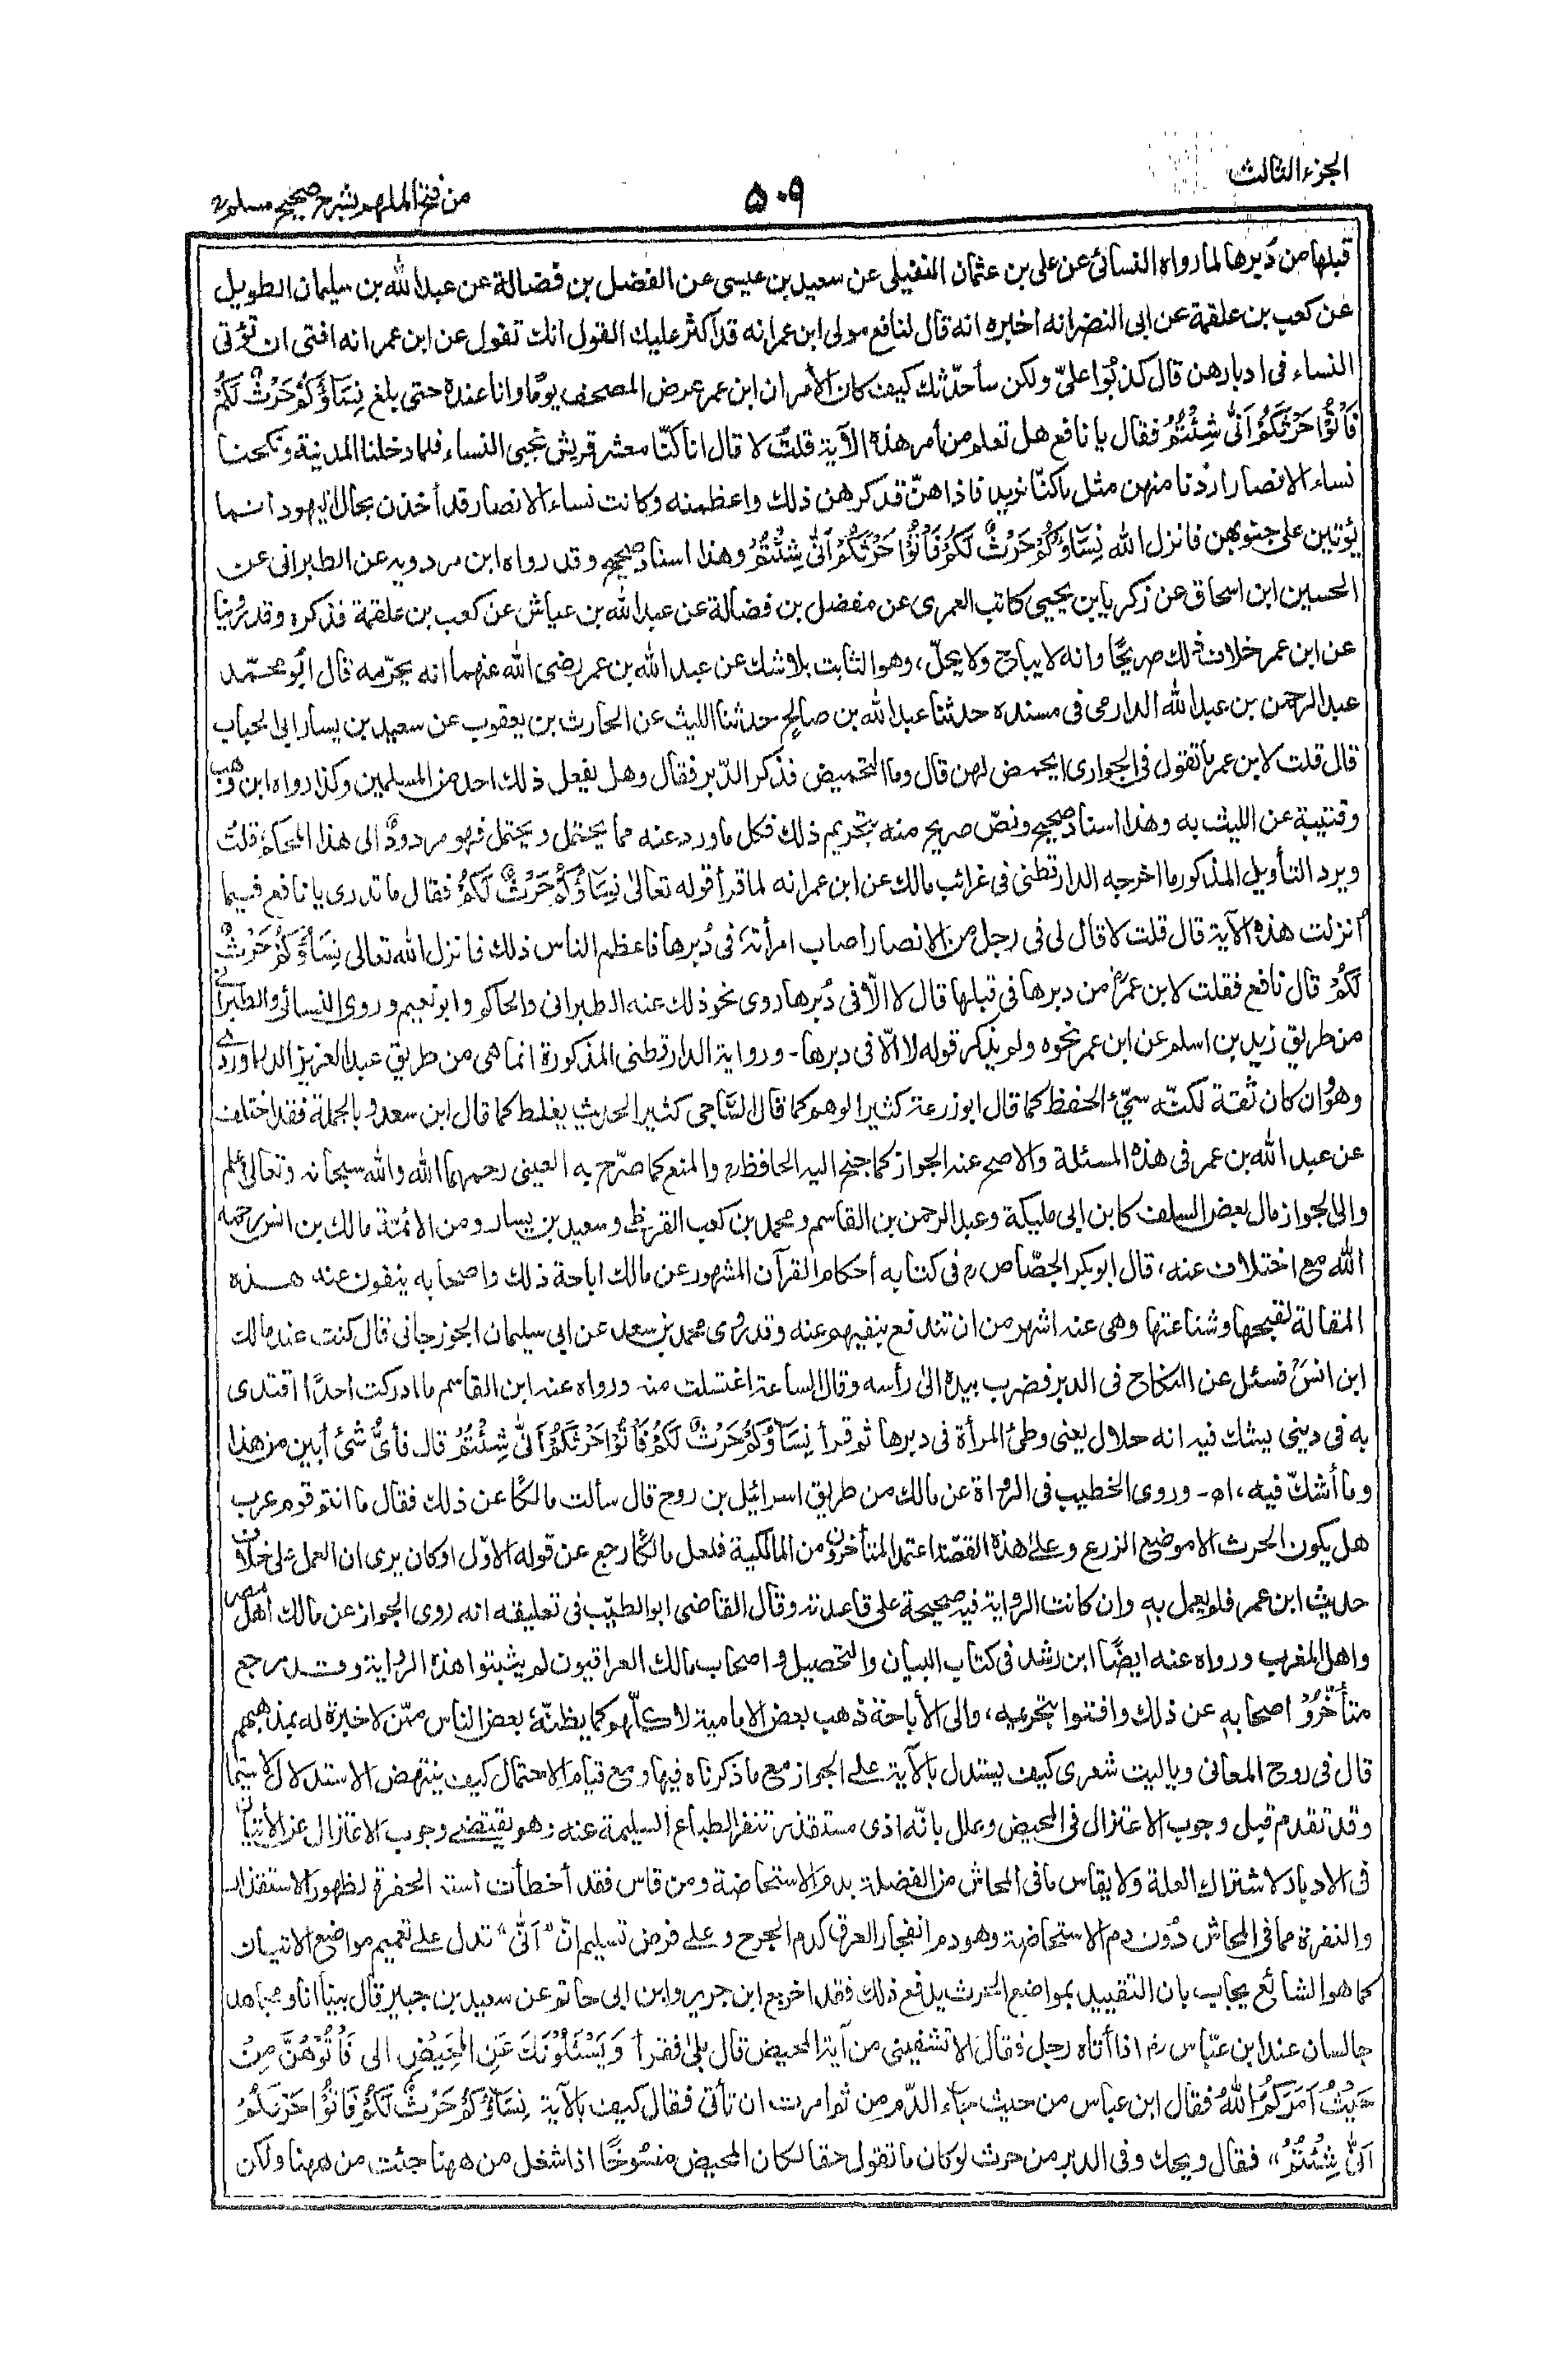 الجزء الثالث
۵۰۹
من فتح الملهم بشرح صحيح مسلم
قبلها من دُبرها لما رواه النسائى عن على بن عثمان النفيلى عن سعيد بن عيسى عن الفضل بن فضالة عن عبدالله بن سليمان الطويل
عن كعب بن علقمة عن ابى النضر انه اخبره انه قال لنافع مولى ابن عمر انه قد اكثر عليك القول انك تقول عن ابن عمر انه افتى ان تؤتى
النساء فى ادبارهن قال كذبُوا علىّ ولكن سأحدّثك كيف كان الأمر ان ابن عمر عرض المصحف يومًا وانا عنده حتى بلغ نِسَآؤُكُمْ حَرْثٌ لَكُمْ
فَأْتُوْا حَرْثَكُمْ اَنّٰى شِئْتُمْ فقال يا نافع هل تعلم من أمر هذه الآية قلتُ لا قال انا كنّا معشر قريش نجبى النساء فلما دخلنا المدينة ونكحنا
نساء الانصار اردنا منهن مثل ما كنّا نريد فاذا هنّ قد كرهن ذلك واعظمنه وكانت نساء الانصار قد أخذن بحال اليهود انما
يؤتين على جنوبهن فانزل الله نِسَآؤُكُمْ حَرْثٌ لَكُمْ فَأْتُوْا حَرْثَكُمْ اَنّٰى شِئْتُمْ وهذا اسناد صحيح وقد رواه ابن مردويه عن الطبرانى عن
الحسين ابن اسحاق عن زكريا بن يحيى كاتب العمرى عن مفضل بن فضالة عن عبدالله بن عياش عن كعب بن علقمة فذكره وقد روينا
عن ابن عمر خلاف ذلك صريحًا وانه لا يباح ولا يحلّ، وهو الثابت بلا شك عن عبدالله بن عمر رضى الله عنهما انه يحرّمه قال ابو محمّد
عبدالرحمن بن عبدالله الدارمى فى مسنده حدثنا عبدالله بن صالح حدثنا الليث عن الحارث بن يعقوب عن سعيد بن يسار ابى الحباب
قال قلت لابن عمر ما تقول فى الجوارى ايحمض لهن قال وما التحميض فذكر الدّبر فقال وهل يفعل ذلك احد من المسلمين وكذا رواه ابن وهب
وقتيبة عن الليث به وهذا اسناد صحيح ونصّ صريح منه بتحريم ذلك فكل ما ورد عنه مما يحتمل ويحتمل فهو مردودٌ الى هذا المحكم، قلت
ويرد التأويل المذكور ما اخرجه الدارقطنى فى غرائب مالك عن ابن عمر انه لما قرأ قوله تعالىٰ نِسَآؤُكُمْ حَرْثٌ لَكُمْ فقال ما تدرى يا نافع فيما
أنزلت هذه الآية قال قلت لا قال لى فى رجل من الانصار اصاب امرأته فى دُبرها فاعظم الناس ذلك فانزل الله تعالى نِسَآؤُكُمْ حَرْثٌ
لَكُمْ قال نافع فقلت لابن عمر من دبرها فى قبلها قال لا الّا فى دُبرها روى نحو ذلك عنه الطبرانى والحاكم وابو نعيم وروى النسائى والطبرانى
من طريق زيد بن اسلم عن ابن عمر نحوه ولم يذكر قوله لا الّا فى دبرها ـ ورواية الدارقطنى المذكورة انما هى من طريق عبدالعزيز الدراوردى
وهو وان كان ثقة لكنّه سيّئ الحفظ كما قال ابو زرعة كثير الوهم كما قال السّاجى كثير الحديث يغلط كما قال ابن سعد وبالجملة فقد اختلف
عن عبدالله بن عمر فى هذه المسئلة والاصح عنه الجواز كما جنح اليه الحافظ والمنع كما صرّح به العينى رحمهما الله والله سبحانه وتعالى اعلم
والى الجواز مال بعض السلف كابن ابى مليكة وعبدالرحمن بن القاسم ومحمد بن كعب القرظى وسعيد بن يسار ومن الائمّة مالك بن انس رحمه
الله مع اختلاف عنه، قال ابو بكر الجصّاص فى كتابه أحكام القرآن المشهور عن مالك اباحة ذلك واصحابه ينفون عنه هذه
المقالة لقبحها وشناعتها وهى عنه اشهر من ان تندفع بنفيهم عنه وقد روى محمد بن سعد عن ابى سليمان الجوزجانى قال كنت عند مالك
ابن انس فسئل عن النكاح فى الدبر فضرب بيده الى رأسه وقال الساعة اغتسلت منه ورواه عنه ابن القاسم ما ادركت احدًا اقتدى
به فى دينى يشك فيه انه حلال يعنى وطئ المرأة فى دبرها ثم قرأ نِسَآؤُكُمْ حَرْثٌ لَكُمْ فَأْتُوْا حَرْثَكُمْ اَنّٰى شِئْتُمْ قال فأىُّ شئ أبين من هذا
وما أشكّ فيه، اھ ـ وروى الخطيب فى الرواة عن مالك من طريق اسرائيل بن روح قال سألت مالكًا عن ذلك فقال ما انتم قوم عرب
هل يكون الحرث الا موضع الزرع وعلى هذه القصّة اعتمد المتأخرون من المالكية فلعل مالكًا رجع عن قوله الاوّل او كان يرى ان العمل على خلاف
حديث ابن عمر فلم يعمل به وان كانت الرواية فيه صحيحة على قاعدته وقال القاضى ابو الطيّب فى تعليقه انه روى الجواز عن مالك اهل مصر
واهل المغرب ورواه عنه ايضًا ابن رشد فى كتاب البيان والتحصيل واصحاب مالك العراقيون لم يثبتوا هذه الرواية وقد رجع
متأخّرو اصحابه عن ذلك وافتوا بتحريمه، والى الأباحة ذهب بعض الامامية لا كلّهم كما يظنّه بعض الناس ممّن لا خبرة له بمذهبهم
قال فى روح المعانى وياليت شعرى كيف يستدل بالآية على الجواز مع ما ذكرناه فيها ومع قيام الاحتمال كيف ينتهض الاستدلال لا سيّما
وقد تقدم قبل وجوب الاعتزال فى المحيض وعلل بانّه اذى مستقذر تنفر الطباع السليمة عنه وهو يقتضى وجوب الاعتزال عن الأتيان
فى الادبار لاشتراك العلة ولا يقاس ما فى المحاش من الفضلة بدم الاستحاضة ومن قاس فقد أخطأت أسته الحفرة لظهور الاستقذار
والنفرة مما فى المحاش دُون دم الاستحاضة وهو دم انفجار العرق كدم الجرح وعلى فرض تسليم انّ "اَنّٰى" تدل على تعميم مواضع الاتيان
كما هو الشائع يجاب بان التقييد بمواضع الحرث يدفع ذلك فقد اخرج ابن جرير وابن ابى حاتم عن سعيد بن جبير قال بينا انا ومجاهد
جالسان عند ابن عبّاس رضـ اذ أتاه رجل فقال الا تشفينى من آية المحيض قال بلىٰ فقرأ وَيَسْئَلُوْنَكَ عَنِ الْمَحِيْضِ الى فَأْتُوْهُنَّ مِنْ
حَيْثُ اَمَرَكُمُ اللهُ فقال ابن عباس من حيث جاء الدّم من ثم امرت ان تأتى فقال كيف بالآية نِسَآؤُكُمْ حَرْثٌ لَكُمْ فَأْتُوْا حَرْثَكُمْ
اَنّٰى شِئْتُمْ،، فقال ويحك وفى الدبر من حرث لو كان ما تقول حقا لكان المحيض منسُوخًا اذا شغل من ههنا جئت من ههنا ولكن